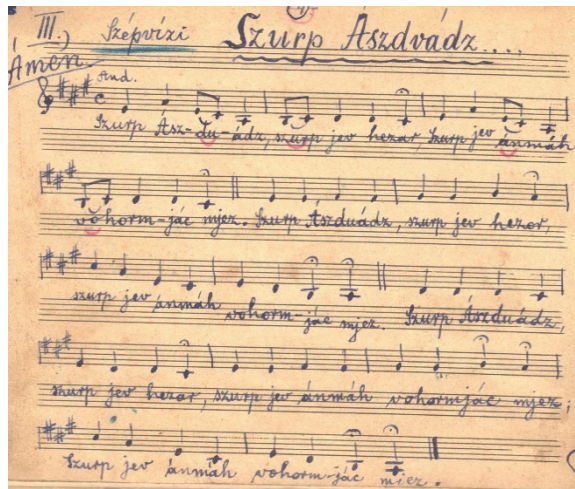 III.) Szépvízi Szurp Ászdvádz....
Ámen
And.
Szurp Ász-du-ádz, szurp jev hezor, Szurp jev ánmáh
vohorm-jác mjez. Szurp Ászduádz, szurp jev hezor,
szurp jev ánmáh vohorm-jác mjez. Szurp Ászduádz,
szurp jev hezor, szurp jev ánmáh vohormjác mjez;
Szurp jev ánmáh vohorm-jác mjez.